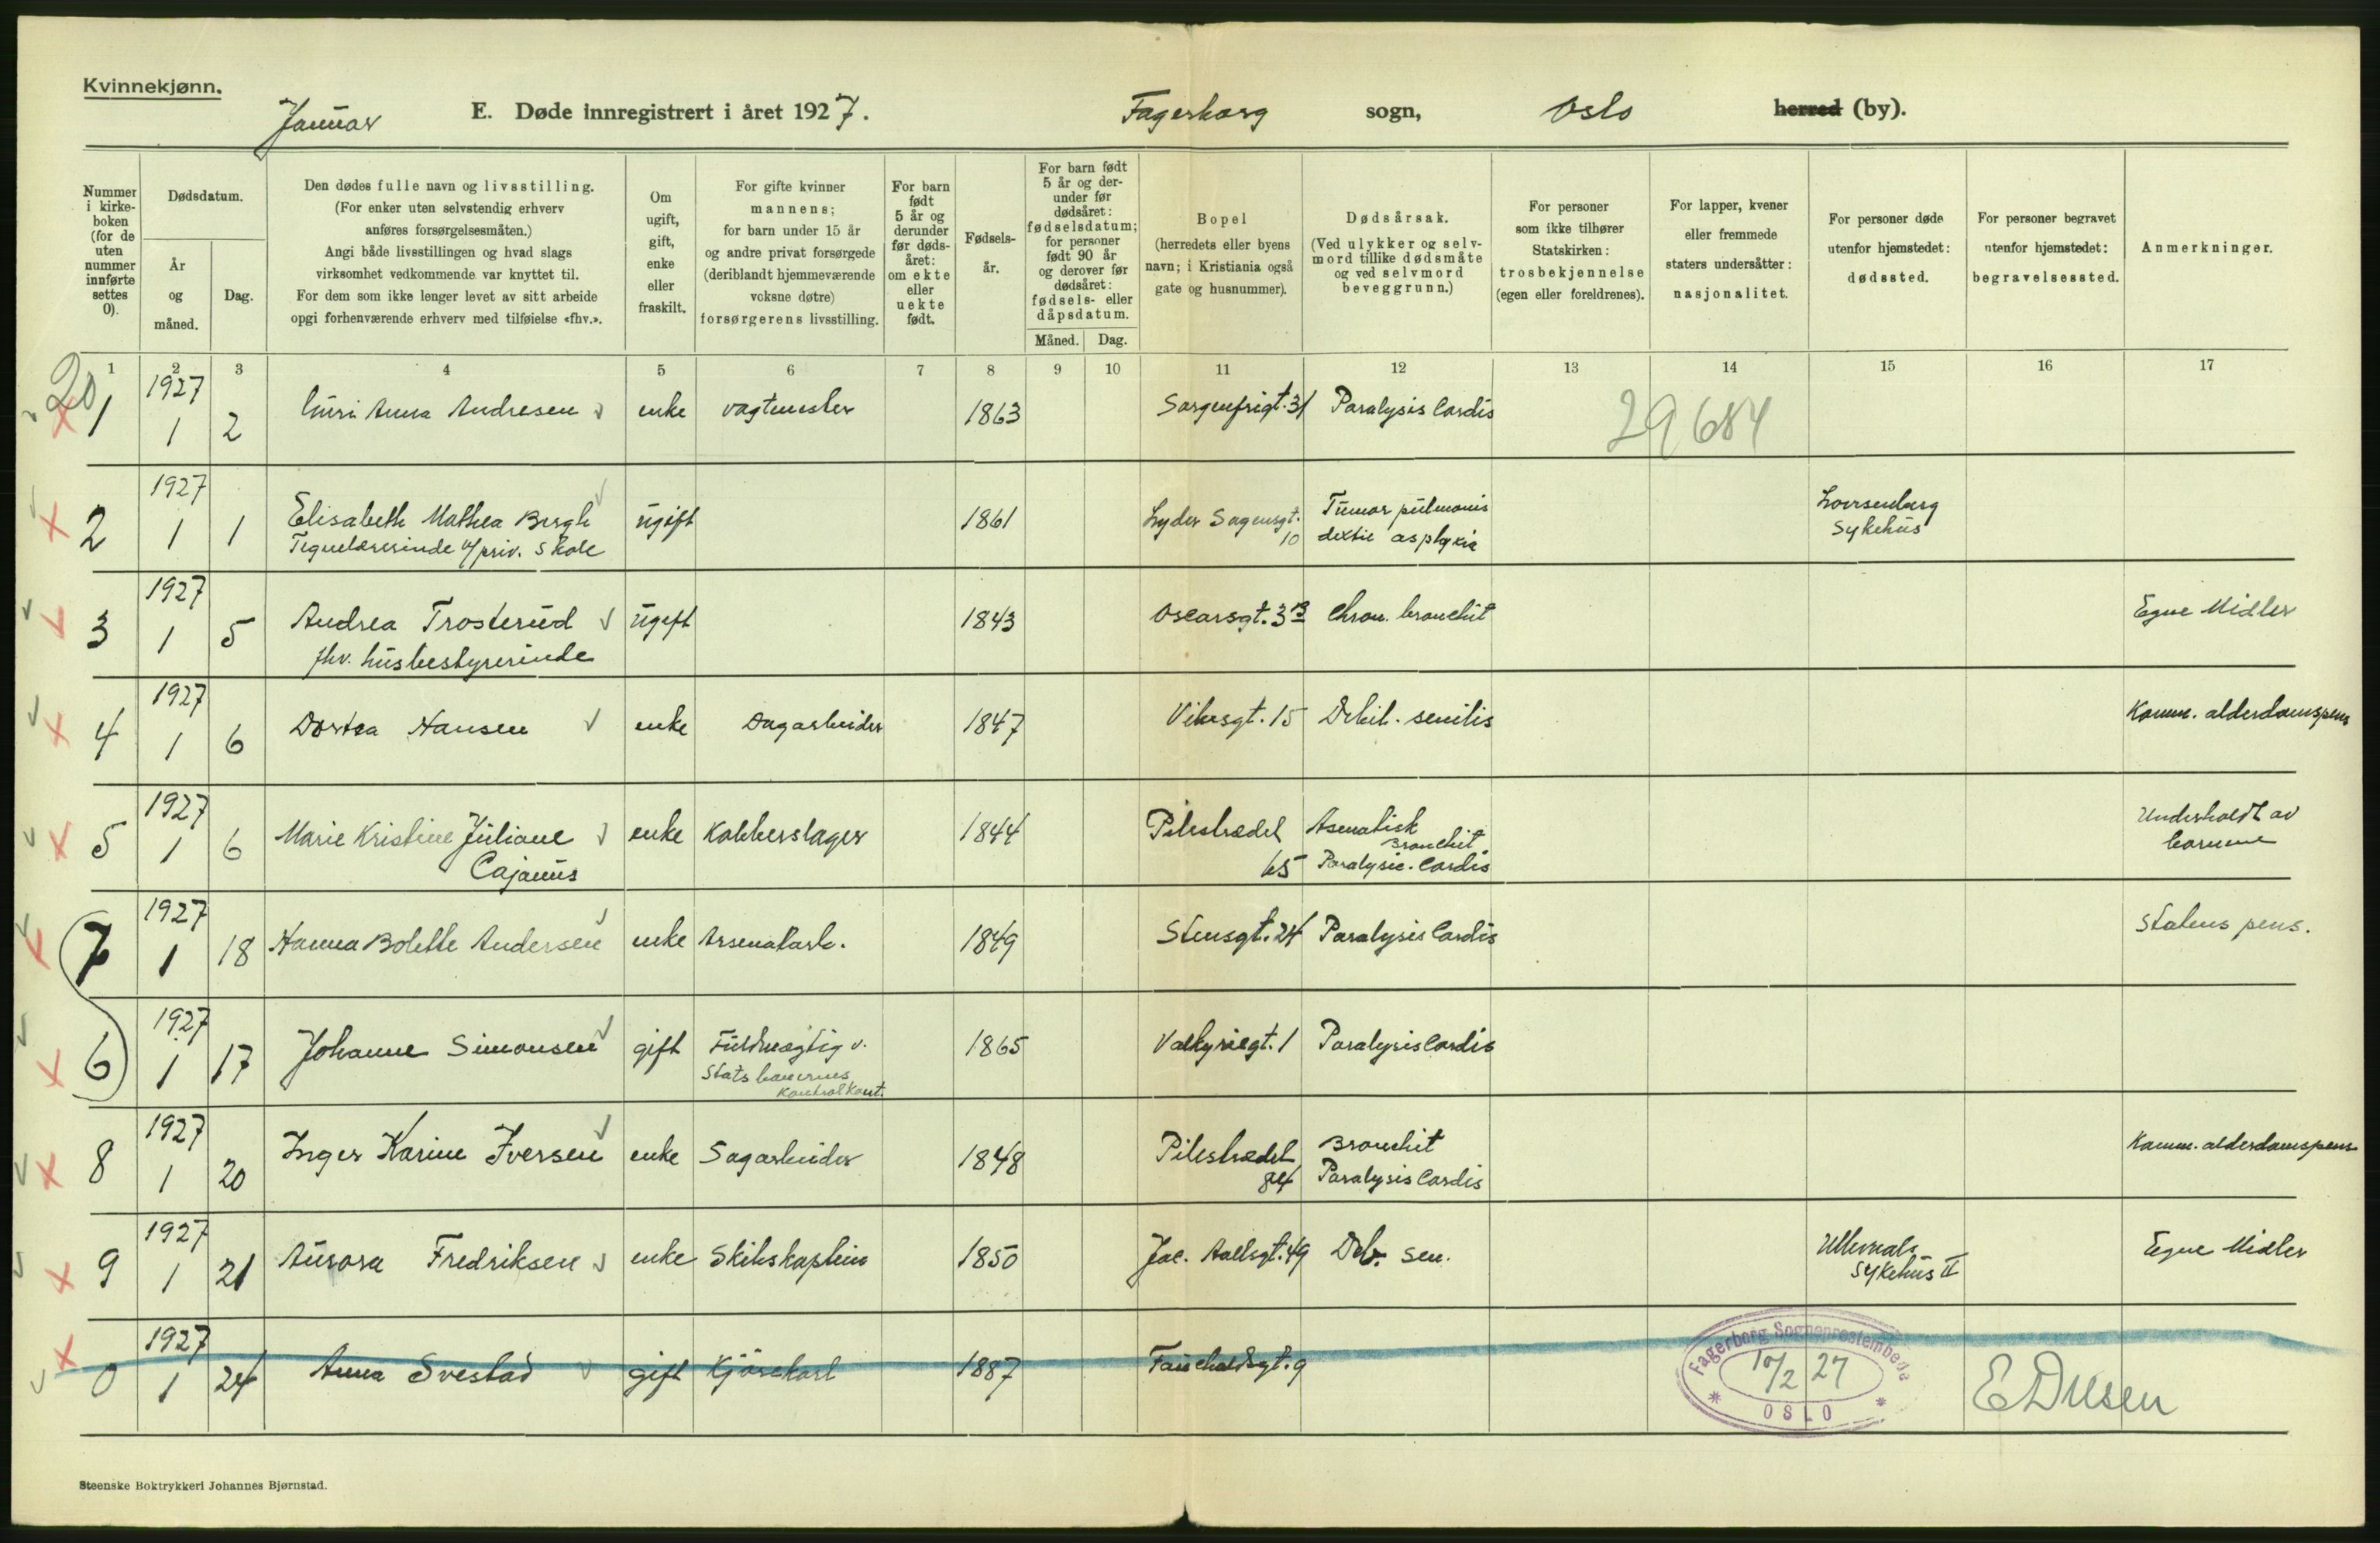 Kvinnekjønn.
Januar E. Døde innregistrert i året 1927. Fagerborg sogn, Oslo herred (by).
Nummer i kirkeboken (for de uten nummer innførte settes 0).
Dødsdatum.
År og måned.
Dag.
Den dødes fulle navn og livsstilling.
(For enker uten selvstendig erhverv
anføres forsørgelsesmåten.)
Angi både livsstillingen og hvad slags
virksomhet vedkommende var knyttet til.
For dem som ikke lenger levet av sitt arbeide
opgi forhenværende erhverv med tilføielse «fhv.».
Om ugift, gift, enke eller fraskilt.
For gifte kvinner
mannens;
for barn under 15 år
og andre privat forsørgede
(deriblandt hjemmeværende
voksne døtre)
forsørgerens livsstilling.
For barn født 5 år og derunder før dødsåret: om ekte eller uekte født.
Fødselsår.
For barn født 5 år og derunder før dødsåret: fødselsdatum; for personer født 90 år og derover før dødsåret: fødsels- eller dåpsdatum.
Måned. Dag.
Bopel
(herredets eller byens
navn; i Kristiania også
gate og husnummer).
Dødsårsak.
(Ved ulykker og selvmord tillike dødsmåte og ved selvmord beveggrunn.)
For personer
som ikke tilhører
Statskirken:
trosbekjennelse
(egen eller foreldrenes).
For lapper, kvener
eller fremmede
staters undersåtter:
nasjonalitet.
For personer døde
utenfor hjemstedet:
dødssted.
For personer begravet
utenfor hjemstedet:
begravelsessted.
Anmerkninger.
1 2 3 4 5 6 7 8 9 10 11 12 13 14 15 16 17
20
1 1927 1 2 Anna Andresen enke vagtmester 1863 Sorgenfrigt. 31 Paralysis Cordis 29684
2 1927 1 1 Elisabeth Mathea Bergh ugift 1861 Lyder Sagensgt. 10 Tumor pulmonis
Tegnelærerinde v/priv. Skole asphyxia Lovisenberg Sykehus
3 1927 1 5 Andrea Trosterud ugift 1843 Oscarsgt. 3B Chron. bronchit Egne Midler
fhv. husbestyrerinde
4 1927 1 6 Dortea Hansen enke Dagarbeider 1847 Vibesgt. 15 Debil. senilis Komm. alderdomspens
5 1927 1 6 Marie Kristine Juliane enke Kobberslager 1844 Pilestrædet 65 Bronchit Underholdt av
Cajanus Paralysis Cordis barnene
7 1927 1 18 Hanna Bolette Andersen enke Arsenalarb. 1849 Stensgt. 24 Paralysis Cordis Statens pens.
6 1927 1 17 Johanne Simonsen gift Fuldmægtig v. 1865 Valkyriegt. 1 Paralysis Cordis
Statsbanernes
Kontrolkont.
8 1927 1 20 Inger Karine Iversen enke Sagarbeider 1848 Pilestrædet 84 Bronchit Komm. alderdomspens
Paralysis Cordis
9 1927 1 21 Aurora Fredriksen enke Skibskaptein 1850 Jac. Aallsgt. 49 Deb. sen. Ullevaals Sykehus II Egne Midler
0 1927 1 24 Anna Svestad gift Kjørekarl 1887 Fauchaldsgt. 9
Fagerborg Sogneprestembede
10/2 27
OSLO
Steenske Boktrykkeri Johannes Bjørnstad.